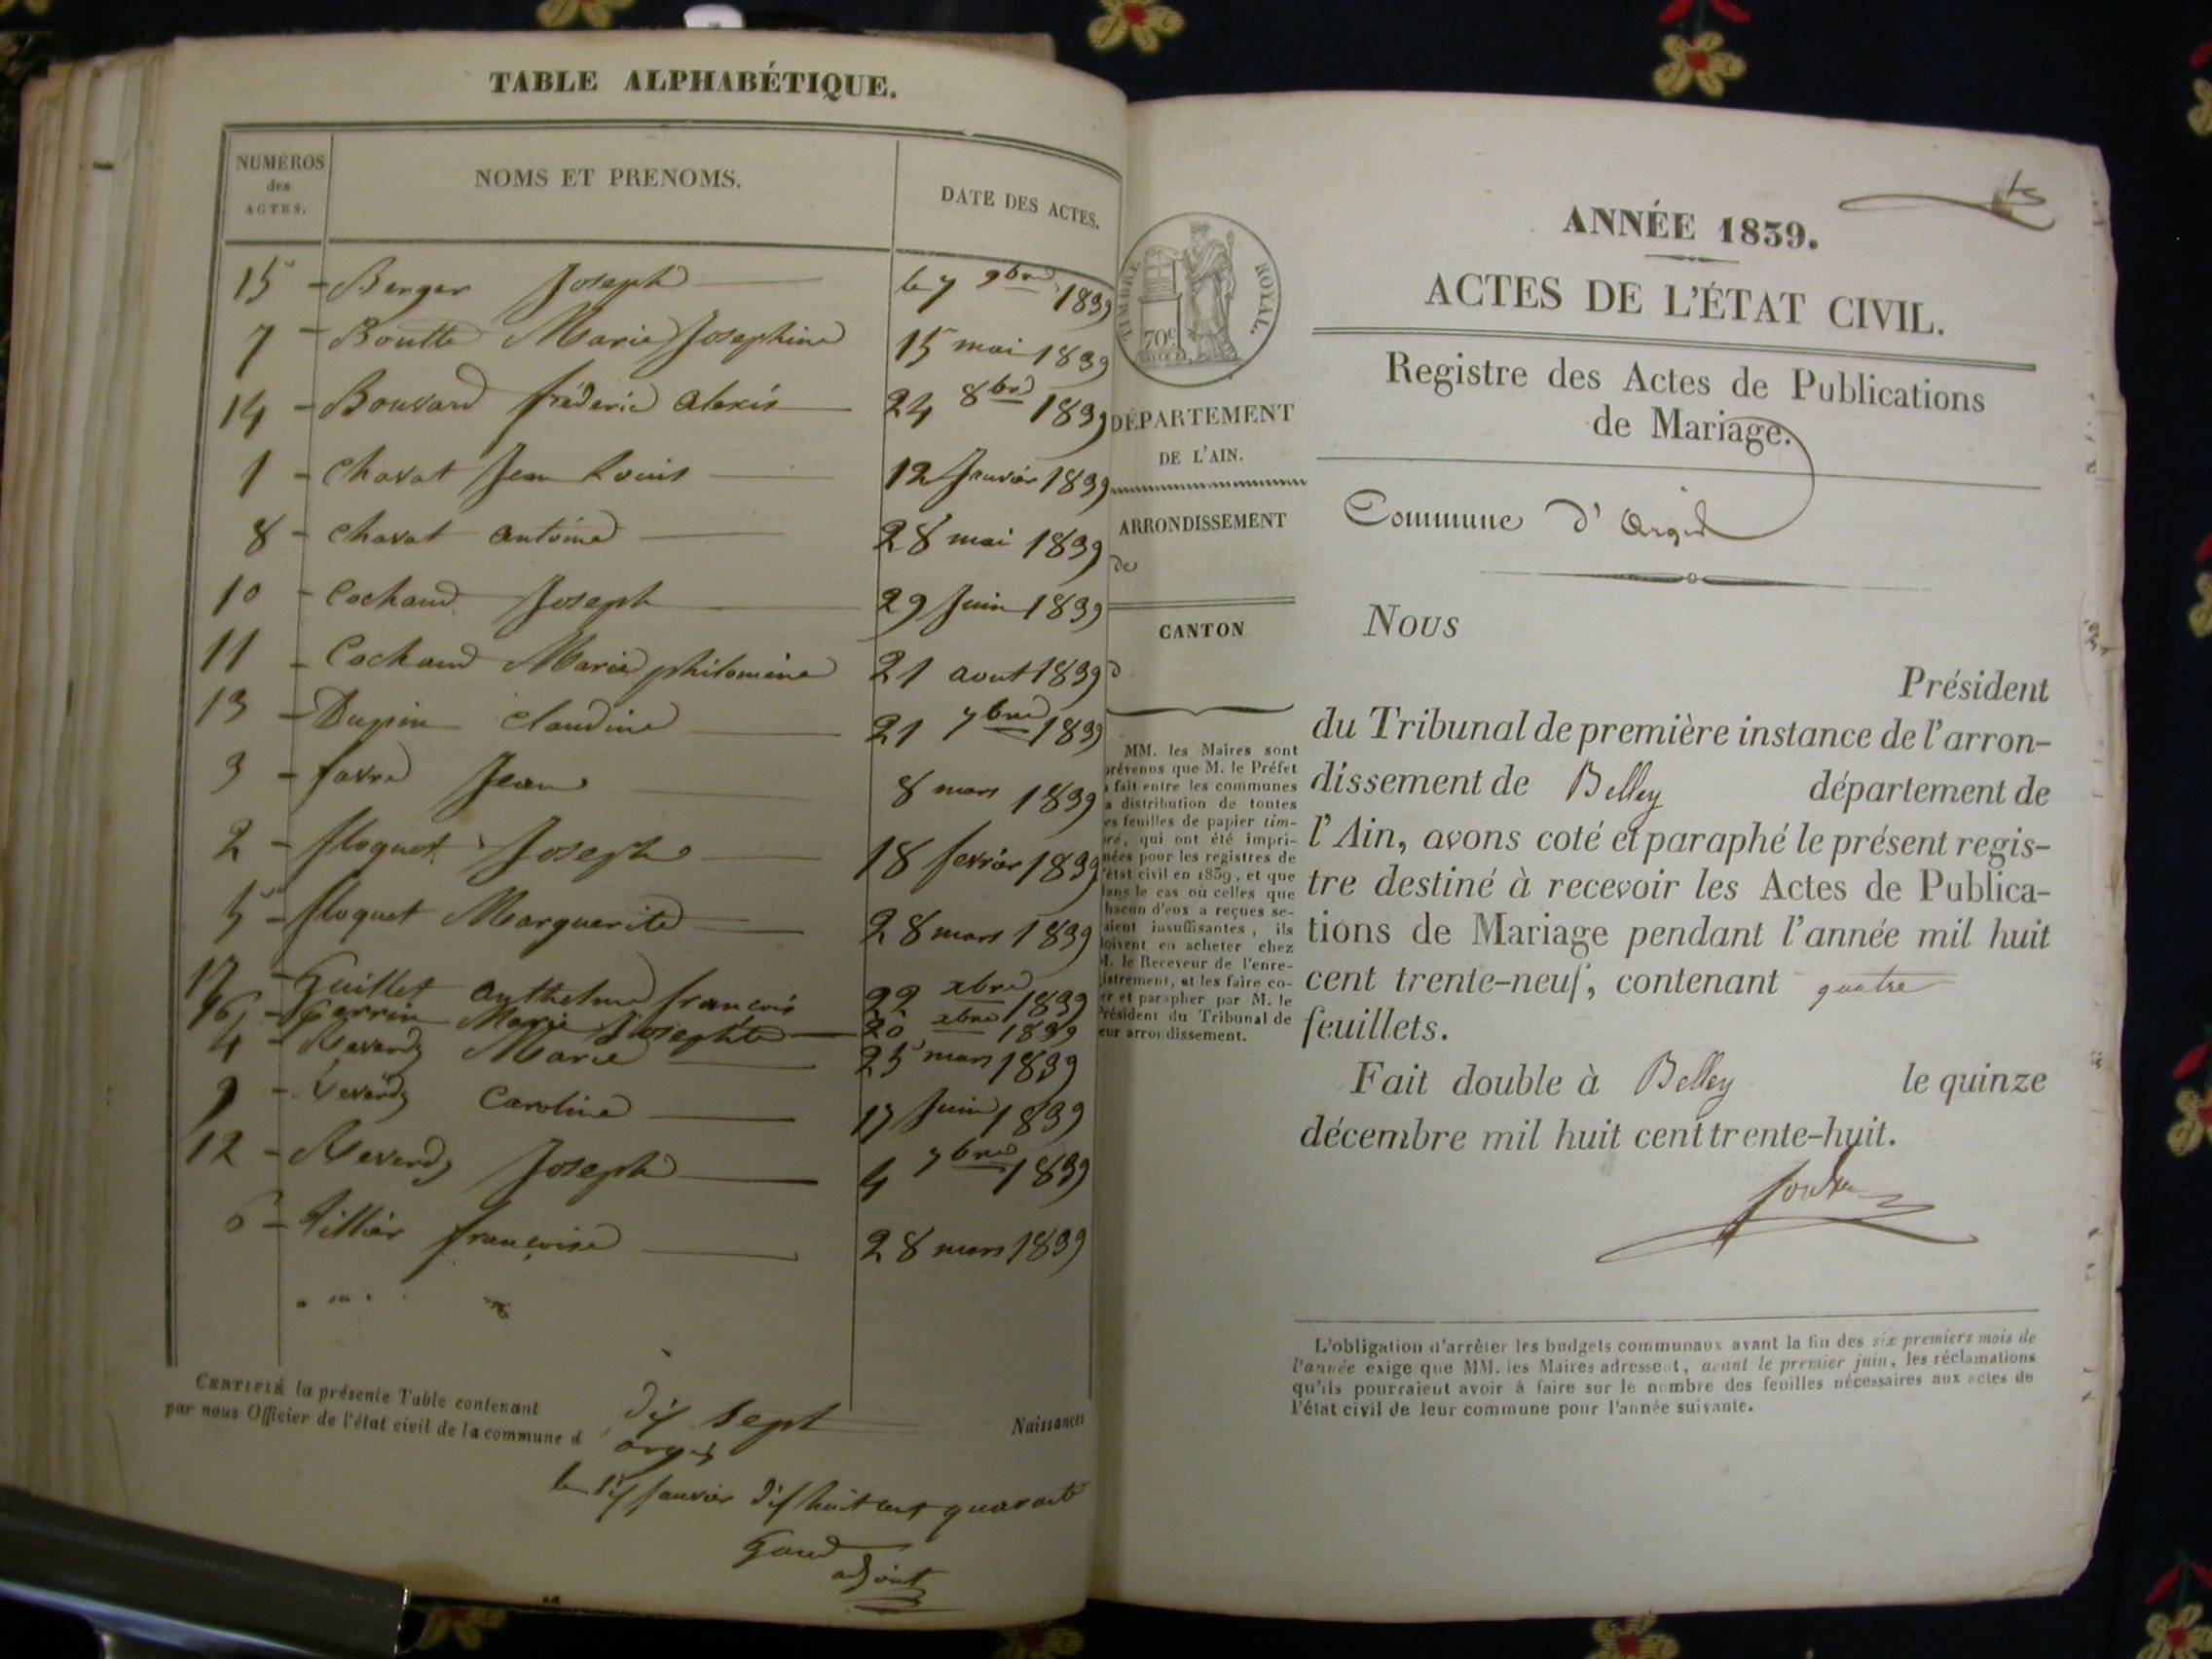 TABLE ALPHABÉTIQUE.
NUMÉROS des ACTES. NOMS ET PRENOMS. DATE DES ACTES.
15 - Berger Joseph le 7 9bre 1839
7 - Boutte Marie Josephine 15 mai 1839
14 - Bouvard fréderic alexis 24 8bre 1839
1 - Chavat Jean Louis 12 Janvier 1839
8 - Chavat antoine 28 mai 1839
10 - Cochaud Joseph 29 Juin 1839
11 - Cochaud Marie philomine 21 aout 1839
13 - Dupin Claudine 21 7bre 1839
3 - favre Jean 8 mars 1839
2 - floquet Joseph 18 fevrier 1839
5 - floquet Marguerite 28 mars 1839
17 - Guillet anthelme françois 22 xbre 1839
16 - Perrin Marie Josephte 20 xbre 1839
4 - Reverdy Marie 25 mars 1839
9 - Reverdy Caroline 17 Juin 1839
12 - Reverdy Joseph 4 7bre 1839
6 - Tillier françoise 28 mars 1839
CERTIFIÉ la présente Table contenant dix sept Naissances
par nous Officier de l'état civil de la commune d'argis
le dix Janvier dix huit cent quarante
adjoint
TIMBRE ROYAL.
70c
DÉPARTEMENT
DE L'AIN.
ARRONDISSEMENT
de
CANTON
d
MM. les Maires sont
prévenus que M. le Préfet
a fait entre les communes
la distribution de toutes
les feuilles de papier tim-
bré, qui ont été impri-
mées pour les registres de
l'état civil en 1839, et que
dans le cas où celles que
chacun d'eux a reçues se-
raient insuffisantes, ils
doivent en acheter chez
M. le Receveur de l'enre-
gistrement, et les faire co-
ter et parapher par M. le
Président du Tribunal de
leur arrondissement.
ANNÉE 1839.
ACTES DE L'ÉTAT CIVIL.
Registre des Actes de Publications
de Mariage.
Commune d'Argis
Nous
Président
du Tribunal de première instance de l'arron-
dissement de Belley département de
l'Ain, avons coté et paraphé le présent regis-
tre destiné à recevoir les Actes de Publica-
tions de Mariage pendant l'année mil huit
cent trente-neuf, contenant quatre
feuillets.
Fait double à Belley le quinze
décembre mil huit cent trente-huit.
L'obligation d'arrêter les budgets communaux avant la fin des six premiers mois de
l'année exige que MM. les Maires adressent, avant le premier juin, les réclamations
qu'ils pourraient avoir à faire sur le nombre des feuilles nécessaires aux actes de
l'état civil de leur commune pour l'année suivante.